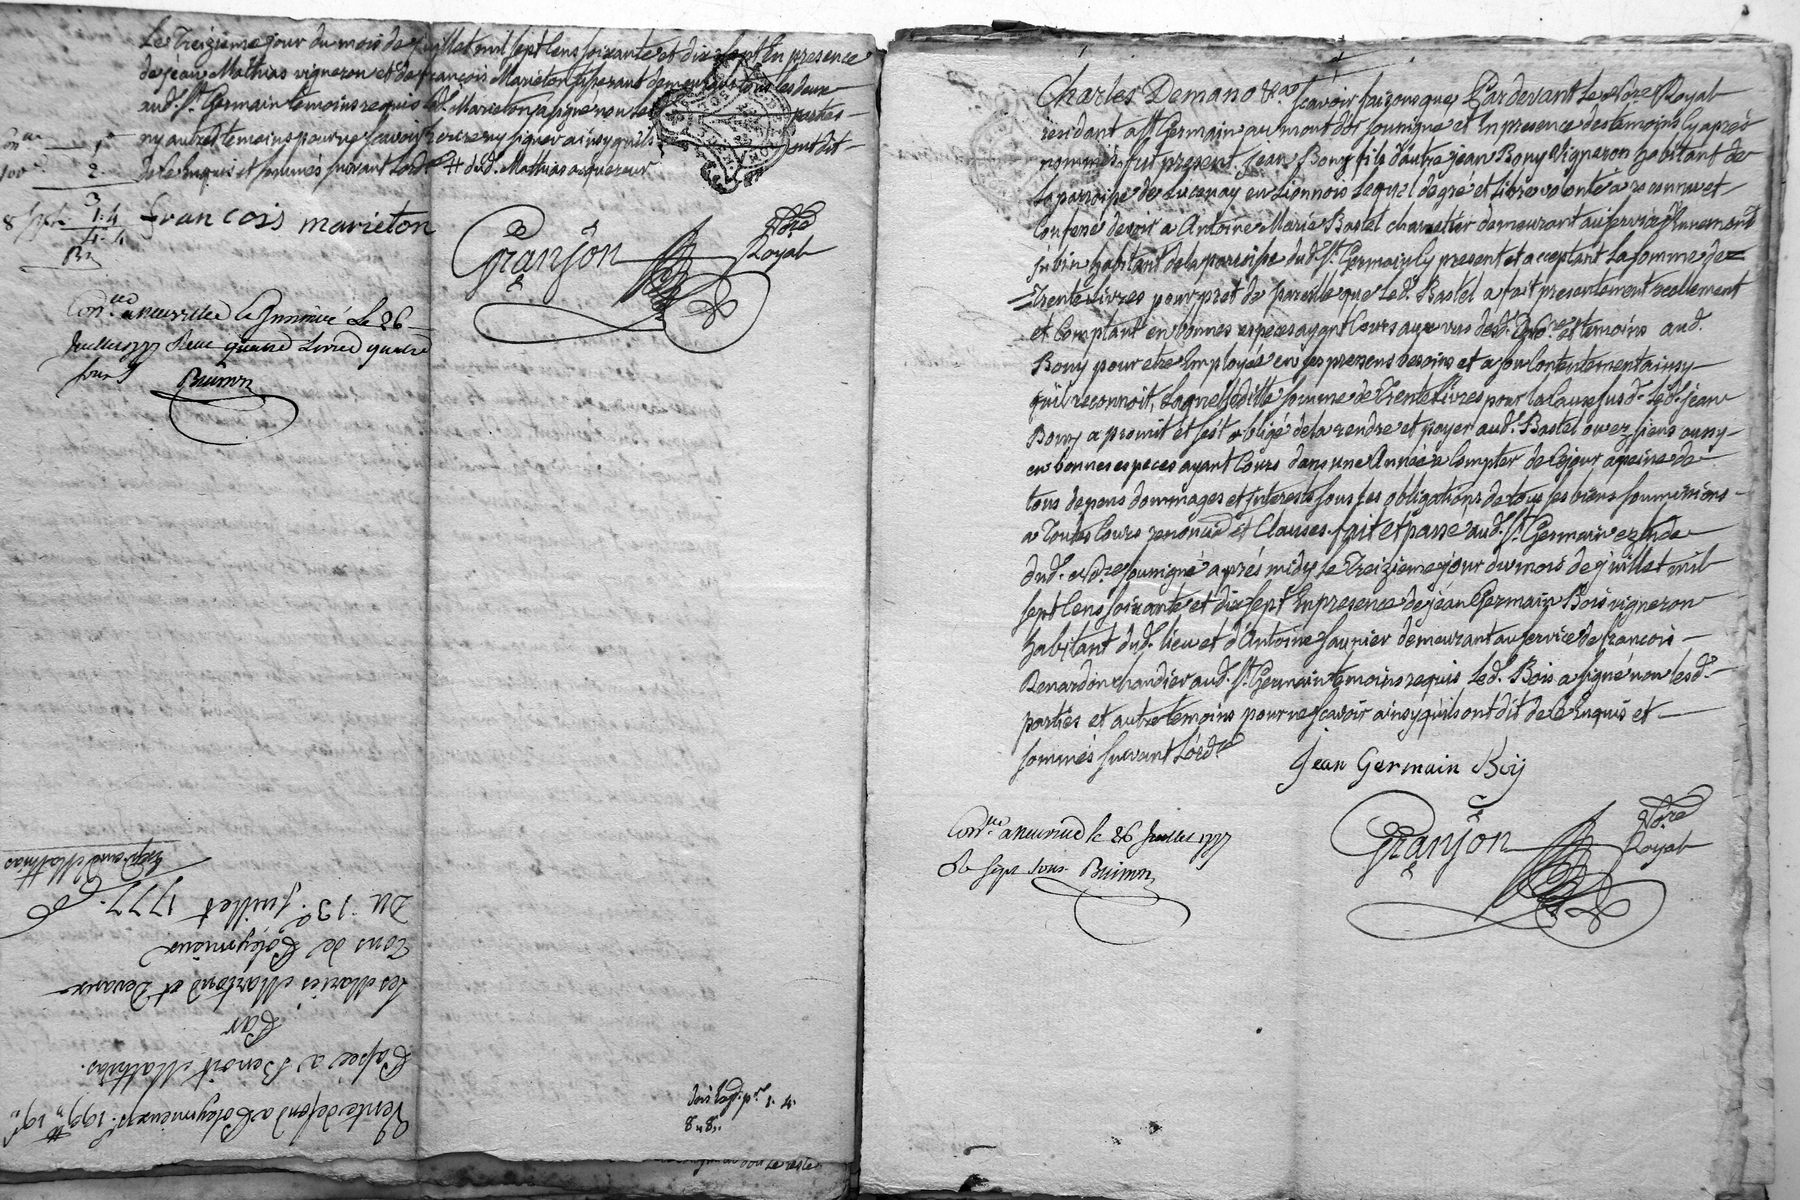 Le Treizieme jour du mois de juillet mil sept Cens soixante et dix sept En presence
de jean Mathias vigneron et de françois Marieton tisserant demeurants tous les deux
aud. St. Germain temoins requis led. Marieton a signé non les parties
ny autre temoins pour ne sçavoir Ecrire ny signer ainsy quils ont dit
de ce Enquis et sommés suivant Lord.ce dud. Mathias acquereur
francois marieton
Granjon Nore Royal
Con.lée a neuville le 26
juillet 1777 Reçu quatre Livres quatre
sous
Vente de fond a Poleymieux pr. 199tt 19s
Passée a Benoit Mathias.
Par
Les Mariés Martond et Devaux
Tous de Poleymieux
Du 13e. juillet 1777.
Exp. aud Mathias
Charles Demano &as. sçavoir faisons que Pardevant Le Nore Royal
residant a St Germain au mont d'or sousigné et En presence des temoins Cy aprés
nommés, fut present Jean Bony fils d'autre jean Bony Vigneron habitant de
La parroisse de Lucenay en Lionnois Lequel de gré et Libre volonté a reconnu et
Confessé devoir a Antoine Marie Bastel charretier demeurant au service
habitant de la parroisse dud. St. Germain Cy present et acceptant La somme de
Trente Livres pour pret de pareille que Led. Bastel a fait presentement reelement
et Comptant en bonnes especes ayant Cours aux vus desd. Nore et temoins aud.
Bony pour etre Employée en ses pressens besoins et a son Contentement ainsy
qu'il reconnoit, Laquelle ditte somme de Trente Livres pour la Cause susd. Led. jean
Bony a promit et s'est obligé de la rendre et payer aud. Bastel ou ez siens aussy
en bonnes especes ayant Cours dans une Année a Compter de Ce jour a peine de
tous depens dommages et Interests sous Les obligations de tous ses biens soumissions
a Toutes Cours renonciad. et Clauses fait et passé aud. St. Germain ez Etude
dud. Nore sousigné aprés midy le Treizieme jour du mois de juillet mil
sept Cens soixante et dix sept En presence de jean Germain Bois vigneron
habitant dud. lieu et d'Antoine saunier demeurant au service de francois
Renardon chandier aud. St. Germain temoins requis Led. Bois a signé non lesd.
parties et autre temoins pour ne sçavoir ainsy quils ont dit de ce Enquis et
sommés suivant Lord.ce
Jean Germain Boy
Granjon Nore Royal
Con.lée a neuville le 26 Juillet 1777
R. sept sous